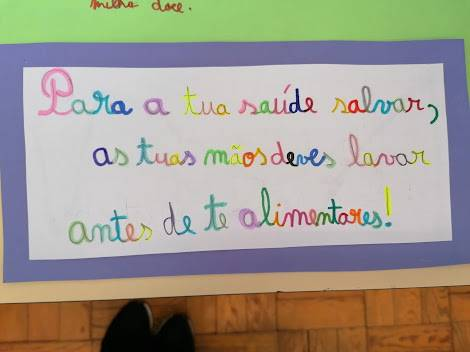 milho doce.
Para a tua saúde salvar,
as tuas mãos deves lavar
antes de te alimentares!